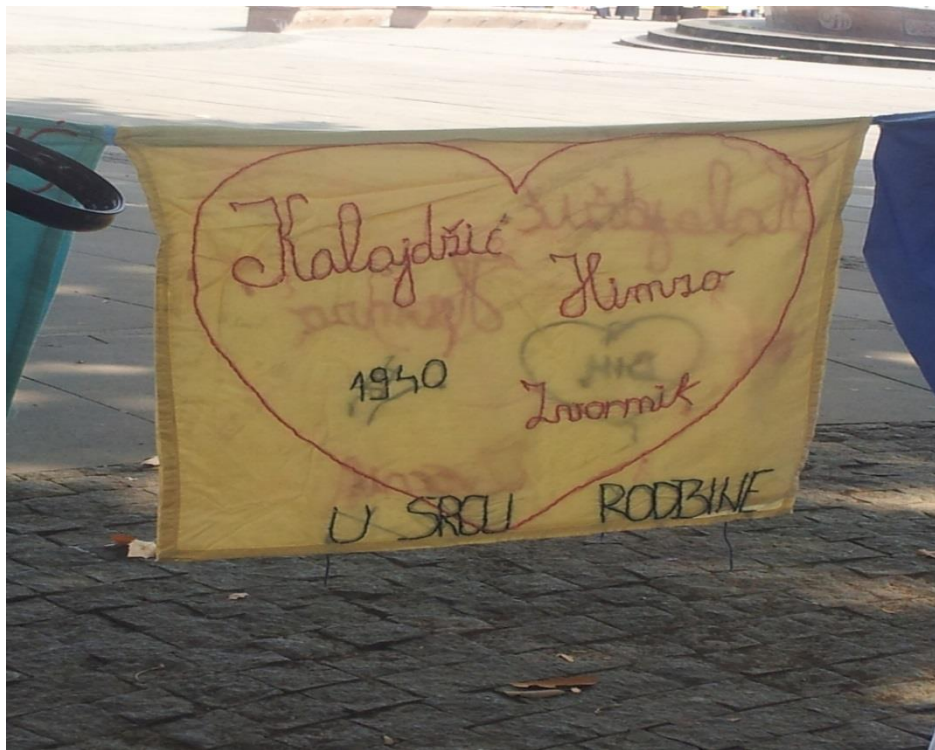 Kalajdžić
Himzo
1940
Zvornik
U SRCU RODBINE